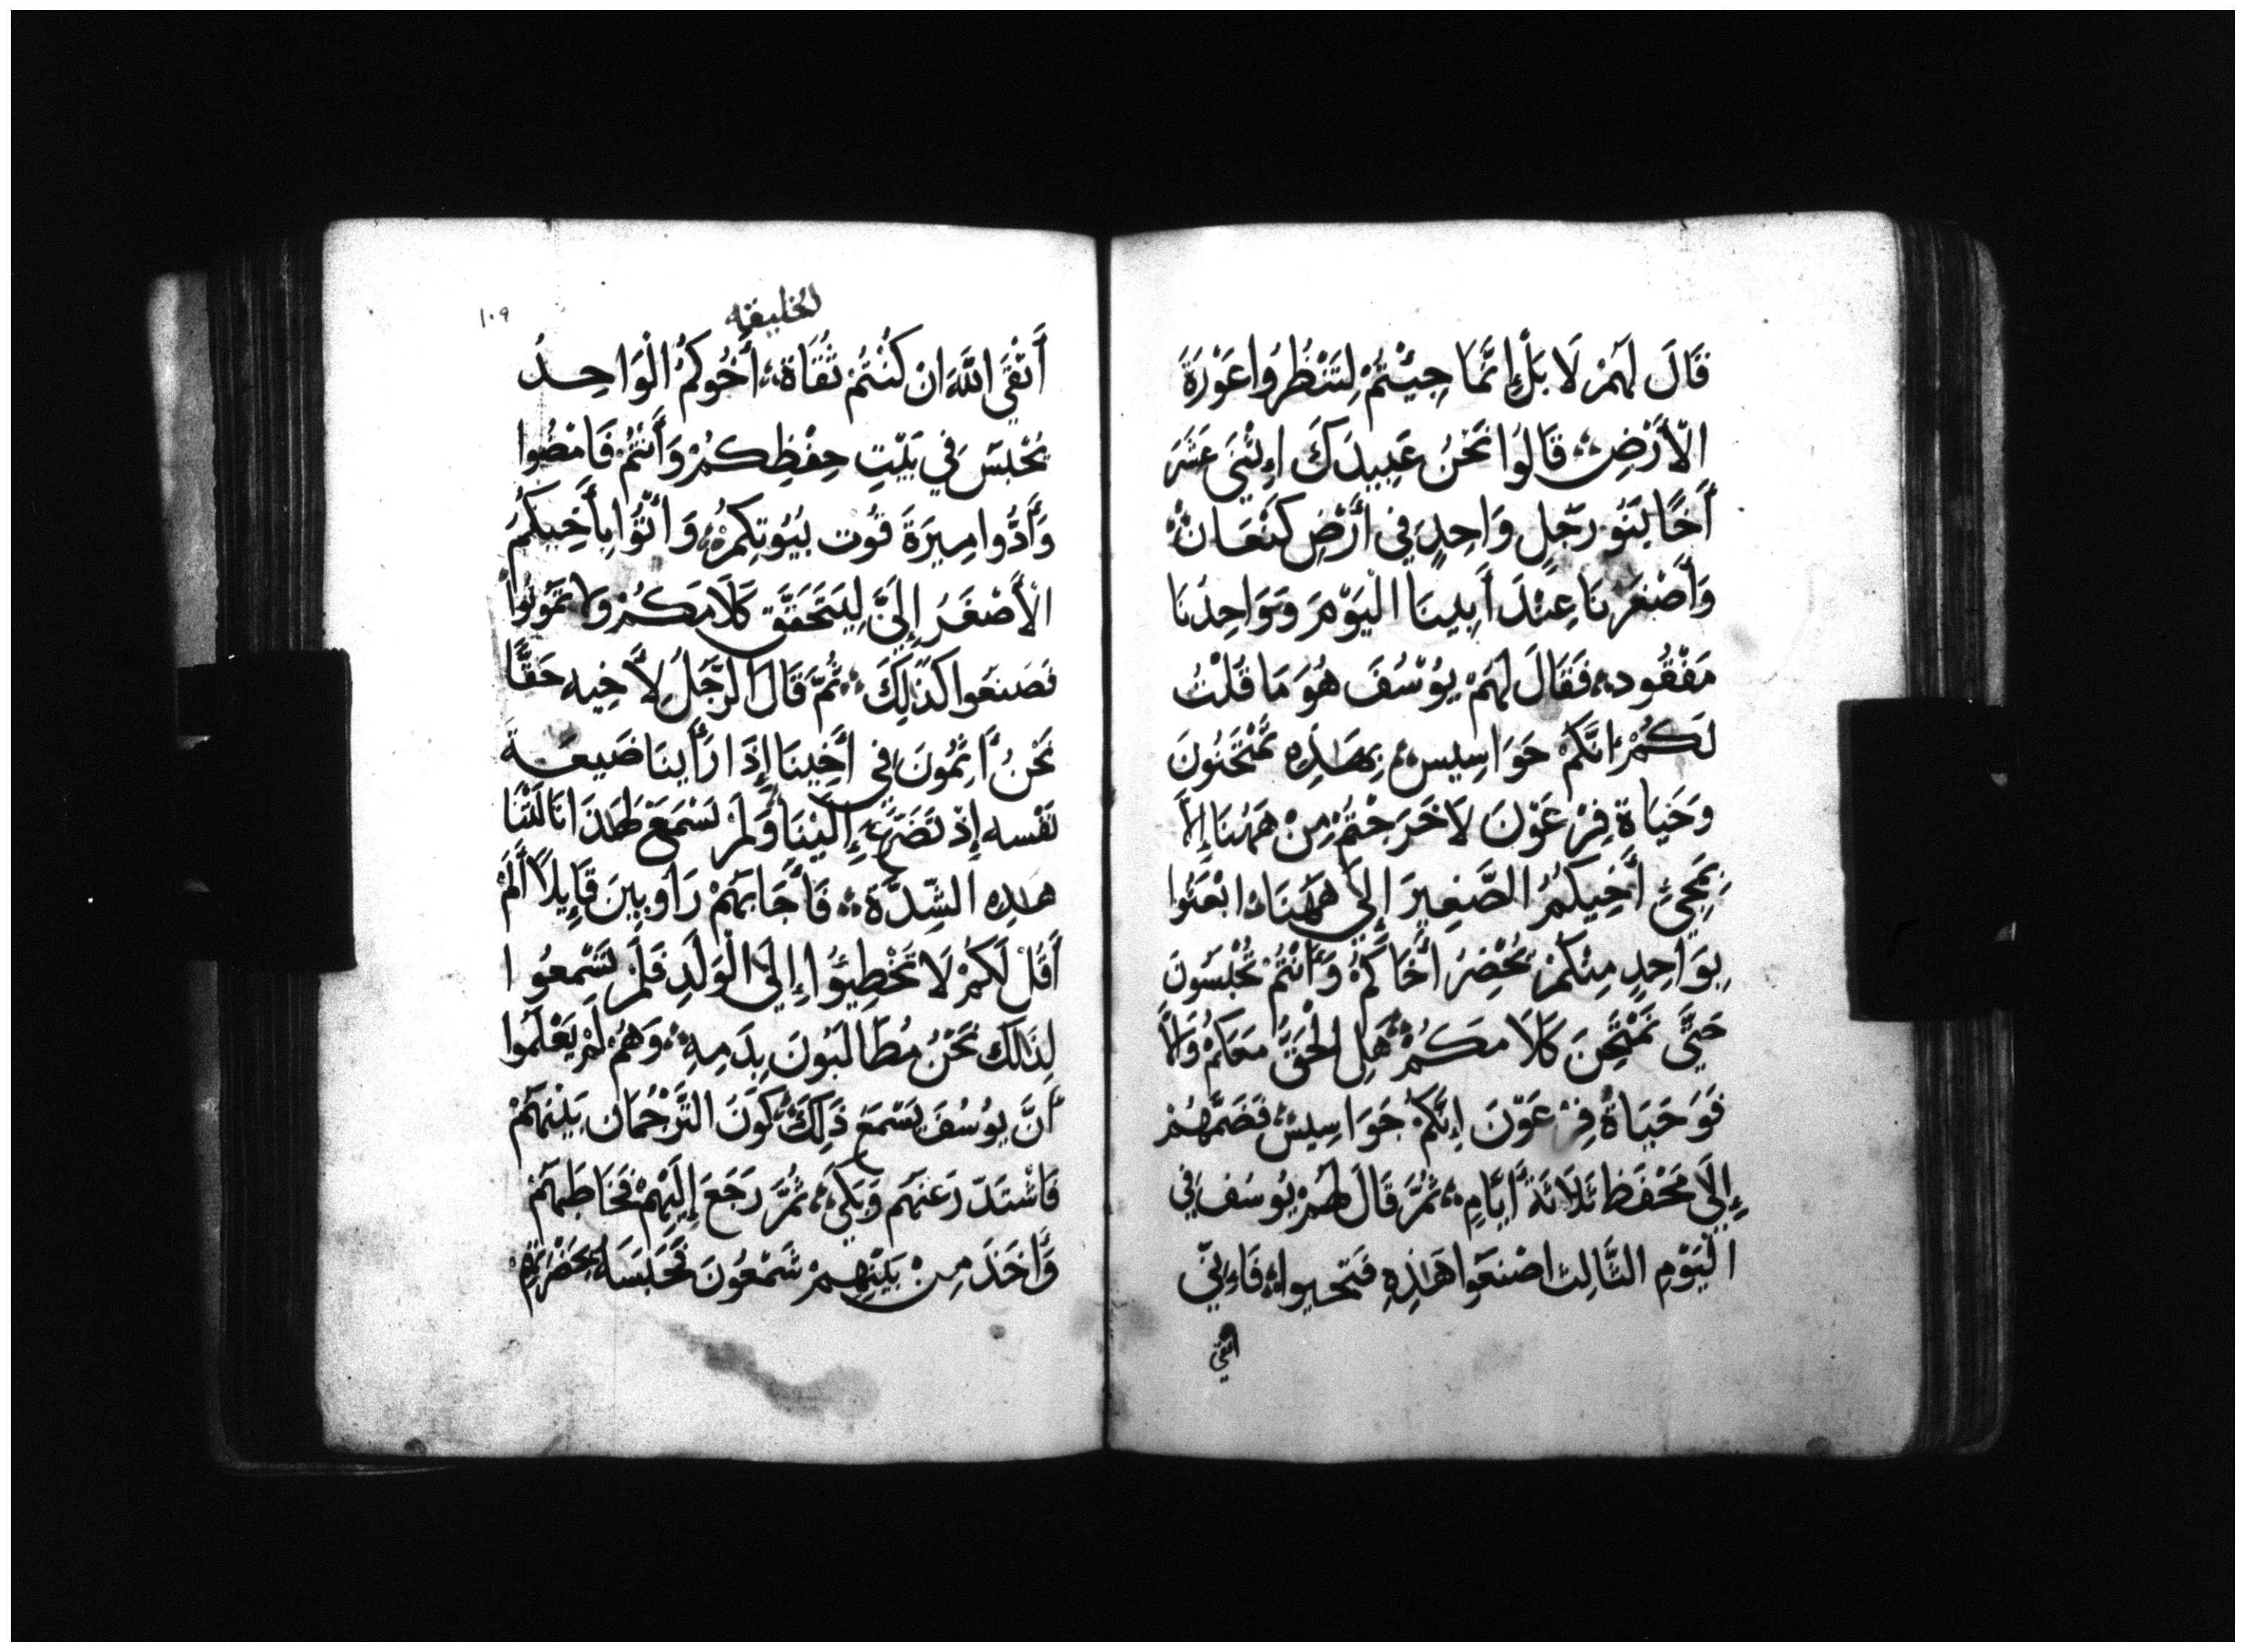 قَالَ لَهُمْ لَا بَلْ إِنَّمَا جِيْتُمْ لِتَنْظُرُوا عَوْرَةَ
الْأَرْضِ؞ قَالُوا نَحْنُ عَبِيدَكَ اِثْنَي عَشَرَ
أَخًا بَنُو رَجُلٍ وَاحِدٍ فِي أَرْضِ كَنْعَانْ؞
وَأَصْغَرْنَا عِنْدَ أَبِينَا الْيَوْمَ وَوَاحِدُنَا
مَفْقُود؞ فَقَالَ لَهُمْ يُوْسُفَ هُوَ مَا قُلْتُ
لَكُمْ إِنَّكُمْ جَوَاسِيس؞ بِهَذِهِ تُمْتَحَنُونَ
وَحَيَاةِ فِرْعَوْنَ لَاخَرَجْتُمْ مِنْ هَهُنَا إِلَّا
بِمَجِيْ أَخِيكُمُ الصَّغِيرَ إِلَي هَهُنَا؞ ابْعَثُوا
بِوَاحِدٍ مِنْكُمْ يُحْضِرُ أَخَاكُمْ وَأَنْتُمْ تُحْبَسُونَ
حَتَّي نَمْتَحِنَ كَلَامَكُمْ؞ هَلِ الْحَقَّ مَعَكُمْ وَلَا
فَوَحَيَاةُ فِرْعَوْنَ إِنَّكُمْ جَوَاسِيسْ؞ فَضَمَّهُمْ
إِلَي مَحْفَظ ثَلَاثَةَ أَيَّامٍ؞ ثُمَّ قَالَ لَهُمْ يُوسَف فِي
الْيَوْمِ الثَّالِث اصْنَعَوا هَذِهِ فَتَحْيوا؞ فَاءِنِّي
اتقي
١٠٩
الخليقه
أَتَّقِي اللَّهَ ان كُنْتُمْ ثُقَاة؞ أَخُوكُمُ الْوَاحِدُ
يُحْبَسَ فِي بَيْتِ حِفْظِكُمْ وَأَنْتُمْ فَامْضُوا
وَأَدُّوا مِيرَةَ قُوْت بُيُوتِكُمْ؞ وَاتُّوا بِأَخِيكُمُ
الْأَصْغَرُ إِلَيَّ لِيَتَحَقَّقَ كَلَامَكُمْ وَلَا تَمُوتُوا
فَصَنَعَوا كَذَلِكَ؞ ثُمَّ قَالَ الرَّجُلُ لِأَخِيه حَقًّا
نَحْنُ أَثِمُونَ فِي أَخِينَا إِذَا رَأَينَا ضَيعَةَ
نَفْسه إِذْ تَضَرَّعَ إِلَيْنَا وَلَمْ نَسْمَعْ لِهَذَا نَالَتْنَا
هَذِهِ الشِّدَّة؞ فَأَجَابَهُمْ رَاوبِينَ قَايِلًا أَلَمْ
أَقُلْ لَكُمْ لَا تَخْطِيُوا إِلَي الْوَلَدِ فَلَمْ تَسْمَعُوا
لِذَلِكَ نَحْنُ مُطَالَبُونَ بِدَمِهِ؞ وَهُمْ لَمْ يَعْلَمُوا
أَنَّ يوُسُفَ يَسْمَعُ ذَلِكَ؞ كَوْنَ التَّرْجُمَان بَيْنَهُمْ
فَاسْتَدَرَ عَنْهُم وَبَكَي؞ ثُمَّ رَجَعَ إِلَيْهِمْ فَخَاطَبَهُمْ
وَأَخَذَ مِنْ بَيْنِهِمْ شَمْعُونَ فَحَبَسَهُ بِحَضْرَتِهِمْ